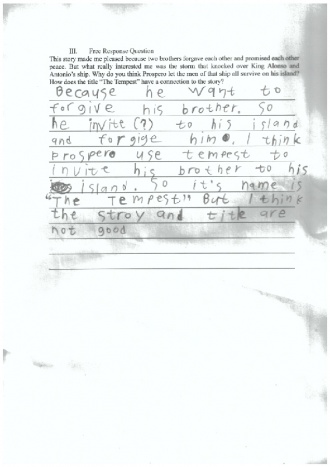 III. Free Response Question
This story made me pleased because two brothers forgave each other and promised each other
peace. But what really interested me was the storm that knocked over King Alonso and
Antonio's ship. Why do you think Prospero let the men of that ship all survive on his island?
How does the title "The Tempest" have a connection to the story?
Because he want to
forgive his brother. So
he invite (?) to his island
and forgige him. I think
prospero use tempest to
invite his brother to his
island. So it's name is
"The Tempest" But I think
the stroy and title are
not good